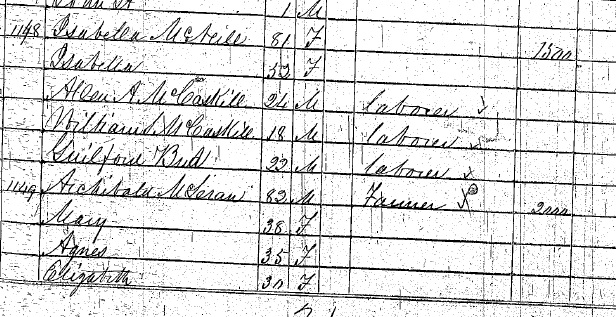 1 M
1148 Isabella McNeill 81 F 1500
Isabella 52 F
Allen A McCaskill 24 M laborer
William McCaskill 18 M laborer
Guilford Bird 22 M laborer
1149 Archibald McLean 82 M Farmer 2000
Mary 38 F
Agnes 35 F
Elizabeth 30 F